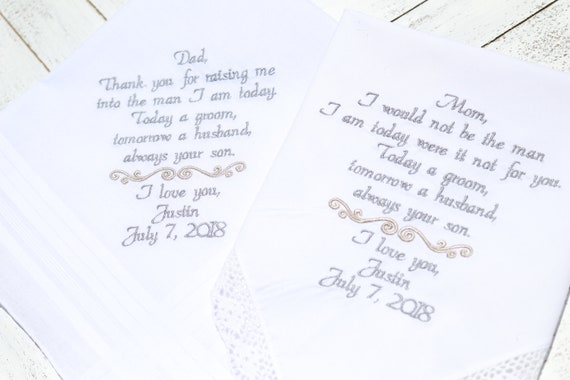 Dad,
Thank you for raising me
into the man I am today.
Today a groom,
tomorrow a husband,
always your son.
I love you,
Justin
July 7, 2018
Mom,
I would not be the man
I am today were it not for you.
Today a groom,
tomorrow a husband,
always your son.
I love you,
Justin
July 7, 2018